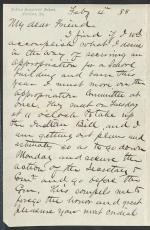 Feby 4 88
My dear Friend
I find if I wd
accomplish what I desire
in the way of securing an
appropriation for a School
building and barn this
year I must move on the
appropriation Committee at
once. They meet on Tuesday
at 11 oclock to take up
the Indian Bill, and I
am getting out plans and
estimates so as to go down
Monday and secure the
action of the Secretary &
Comr. and go before the
Com. This compels me to
forego the honor and great
pleasure your most cordial